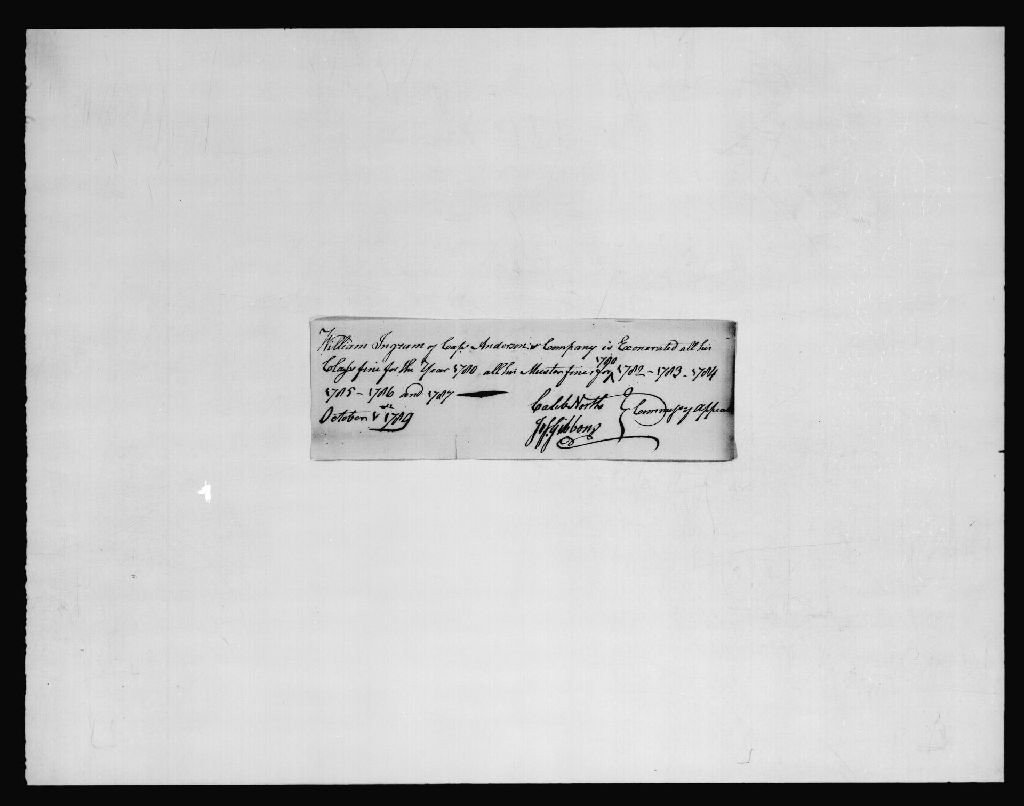 William Ingram of Capt. Anderson's Company is Exonerated all his
Class fine for the Year 1780, all his Muster fines for 1780 1782 - 1783 - 1784
1785 - 1786 and 1787
Caleb North
Commissrs of Appeal
October 1789
Jos. Gibbons